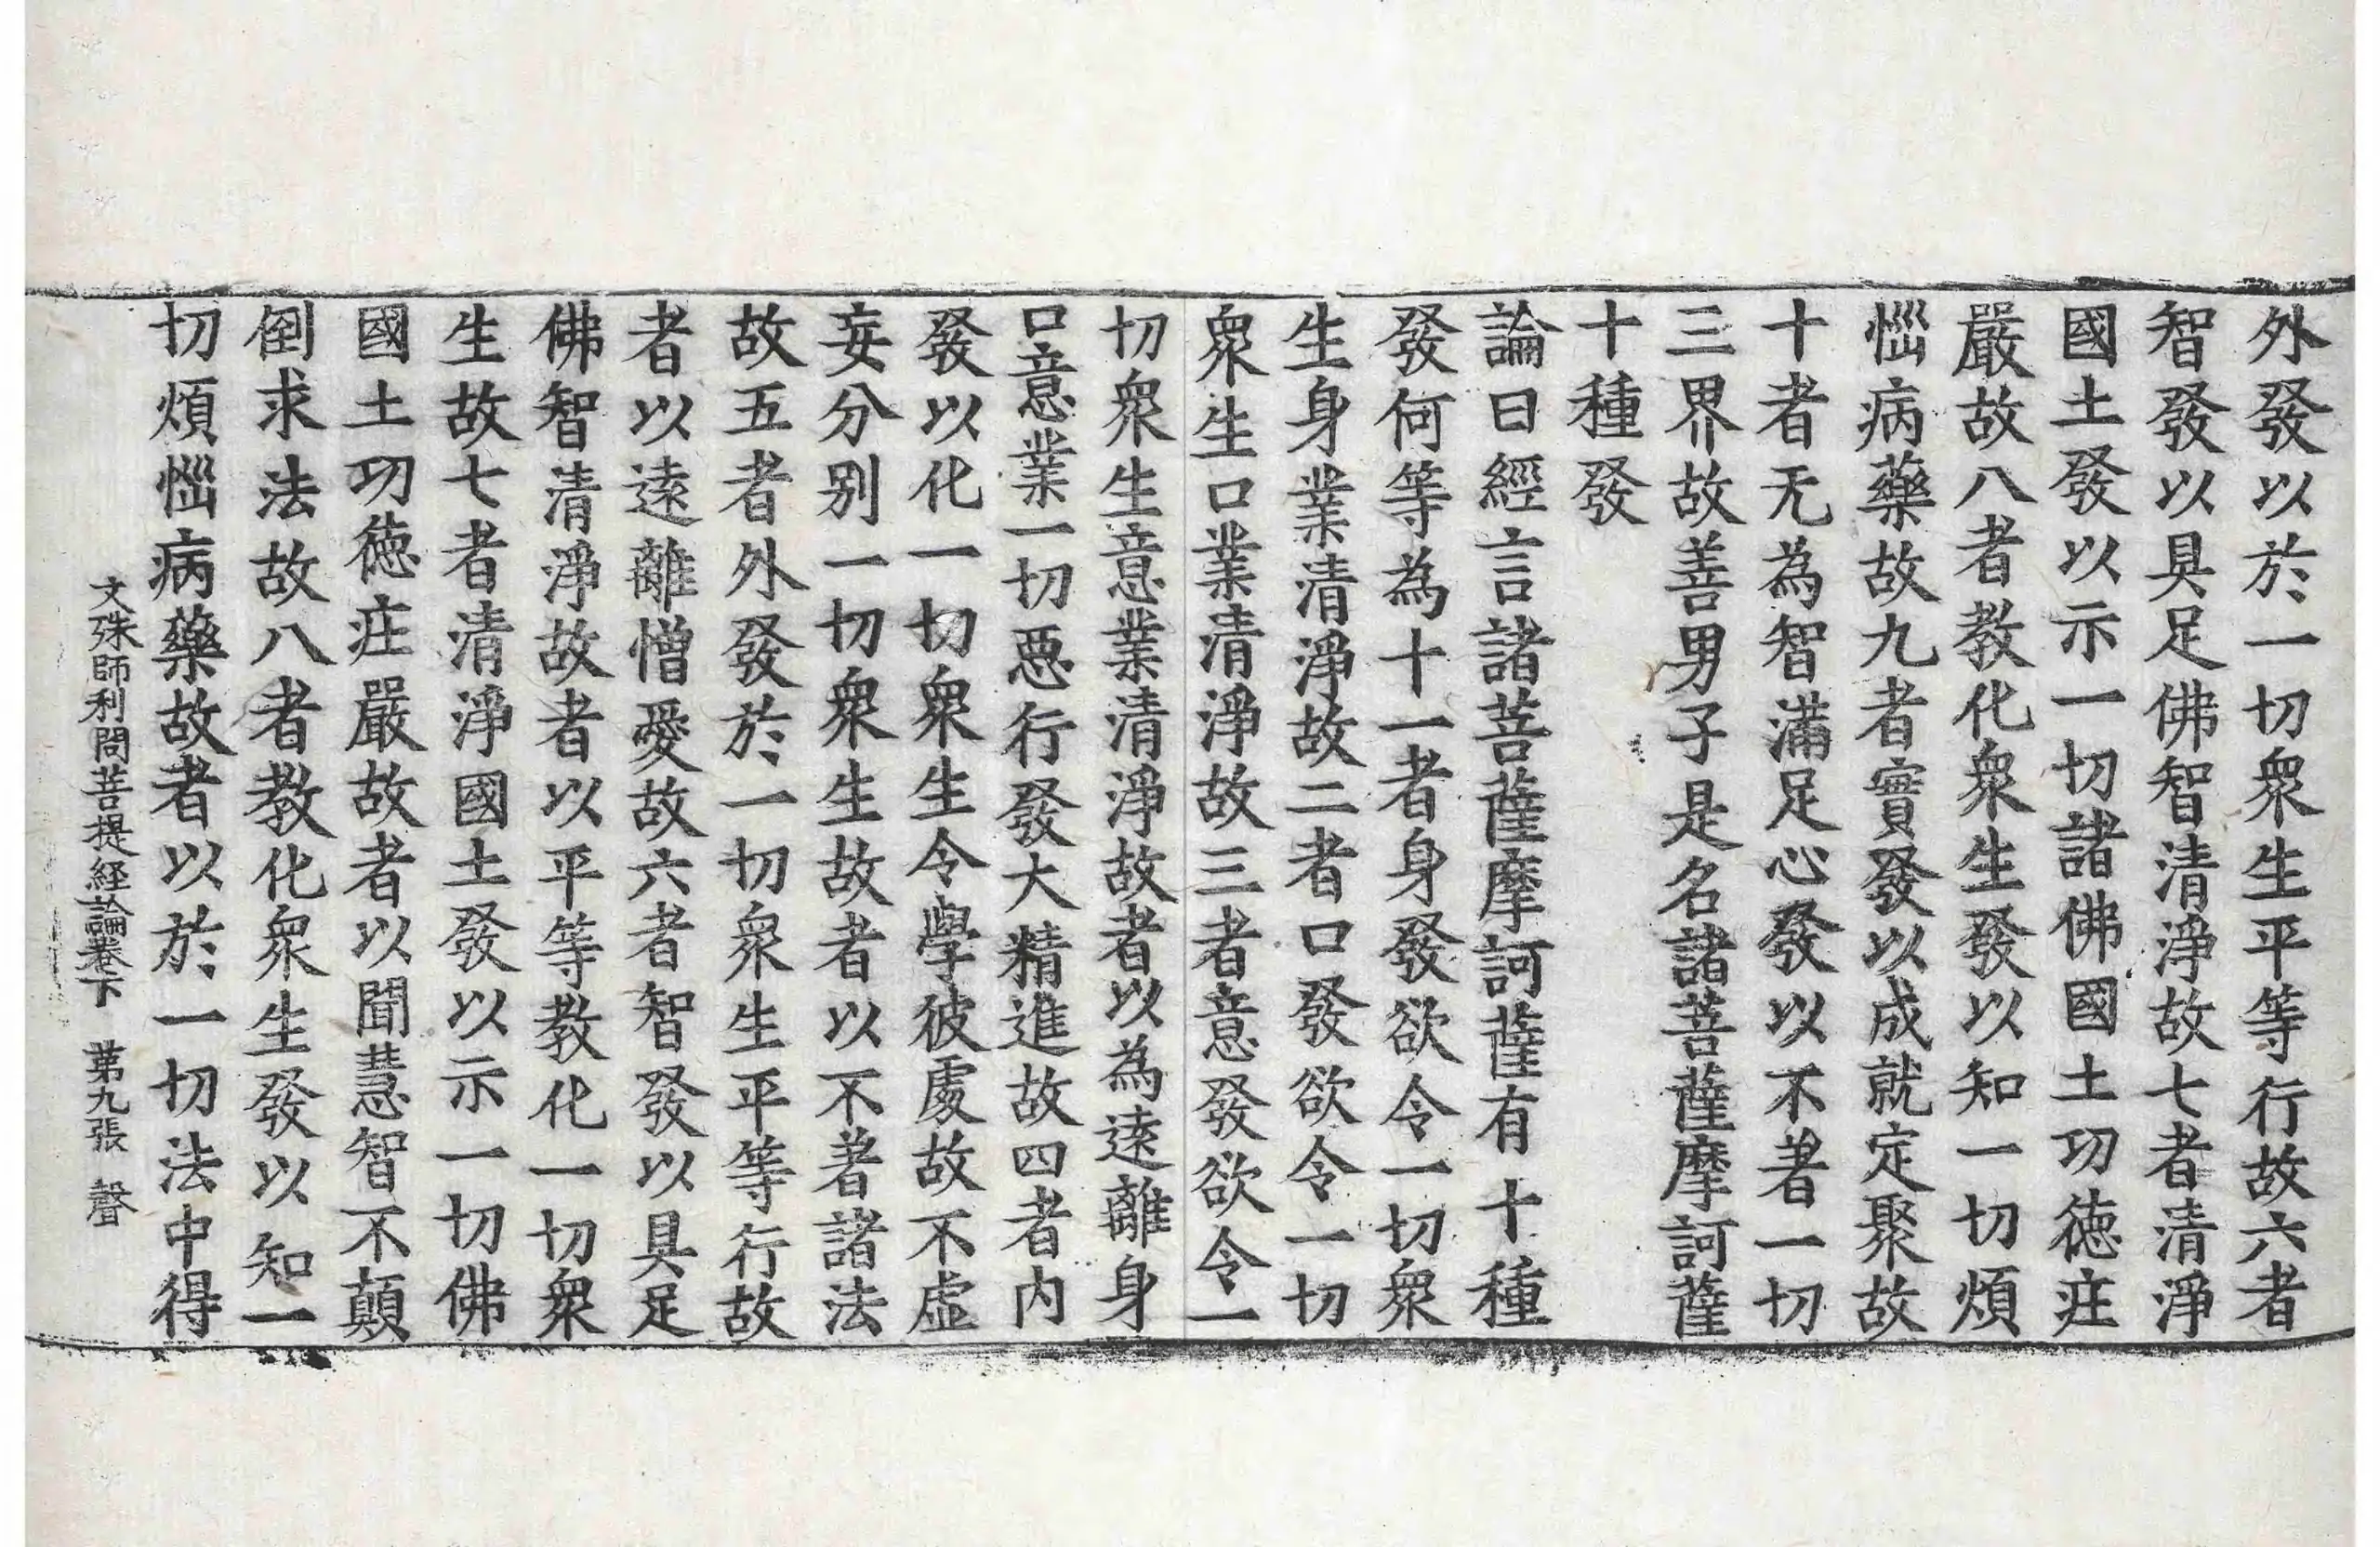 外發以於一切衆生平等行故六者
智發以具足佛智清淨故七者清淨
國土發以示一切諸佛國土功徳㽵
嚴故八者教化衆生發以知一切煩
惱病藥故九者實發以成就定聚故
十者无為智滿足心發以不著一切
三界故善男子是名諸菩薩摩訶薩
十種發
論曰經言諸菩薩摩訶薩有十種
發何等為十一者身發欲令一切衆
生身業清淨故二者口發欲令一切
衆生口業清淨故三者意發欲令一
切衆生意業清淨故者以為遠離身
口意業一切惡行發大精進故四者内
發以化一切衆生令學彼處故不虛
妄分別一切衆生故者以不著諸法
故五者外發於一切衆生平等行故
者以遠離憎愛故六者智發以具足
佛智清淨故者以平等教化一切衆
生故七者清淨國土發以示一切佛
國土功徳㽵嚴故者以聞慧智不顛
倒求法故八者教化衆生發以知一
切煩惱病藥故者以於一切法中得
文殊師利問菩提経論卷下 第九張 聲